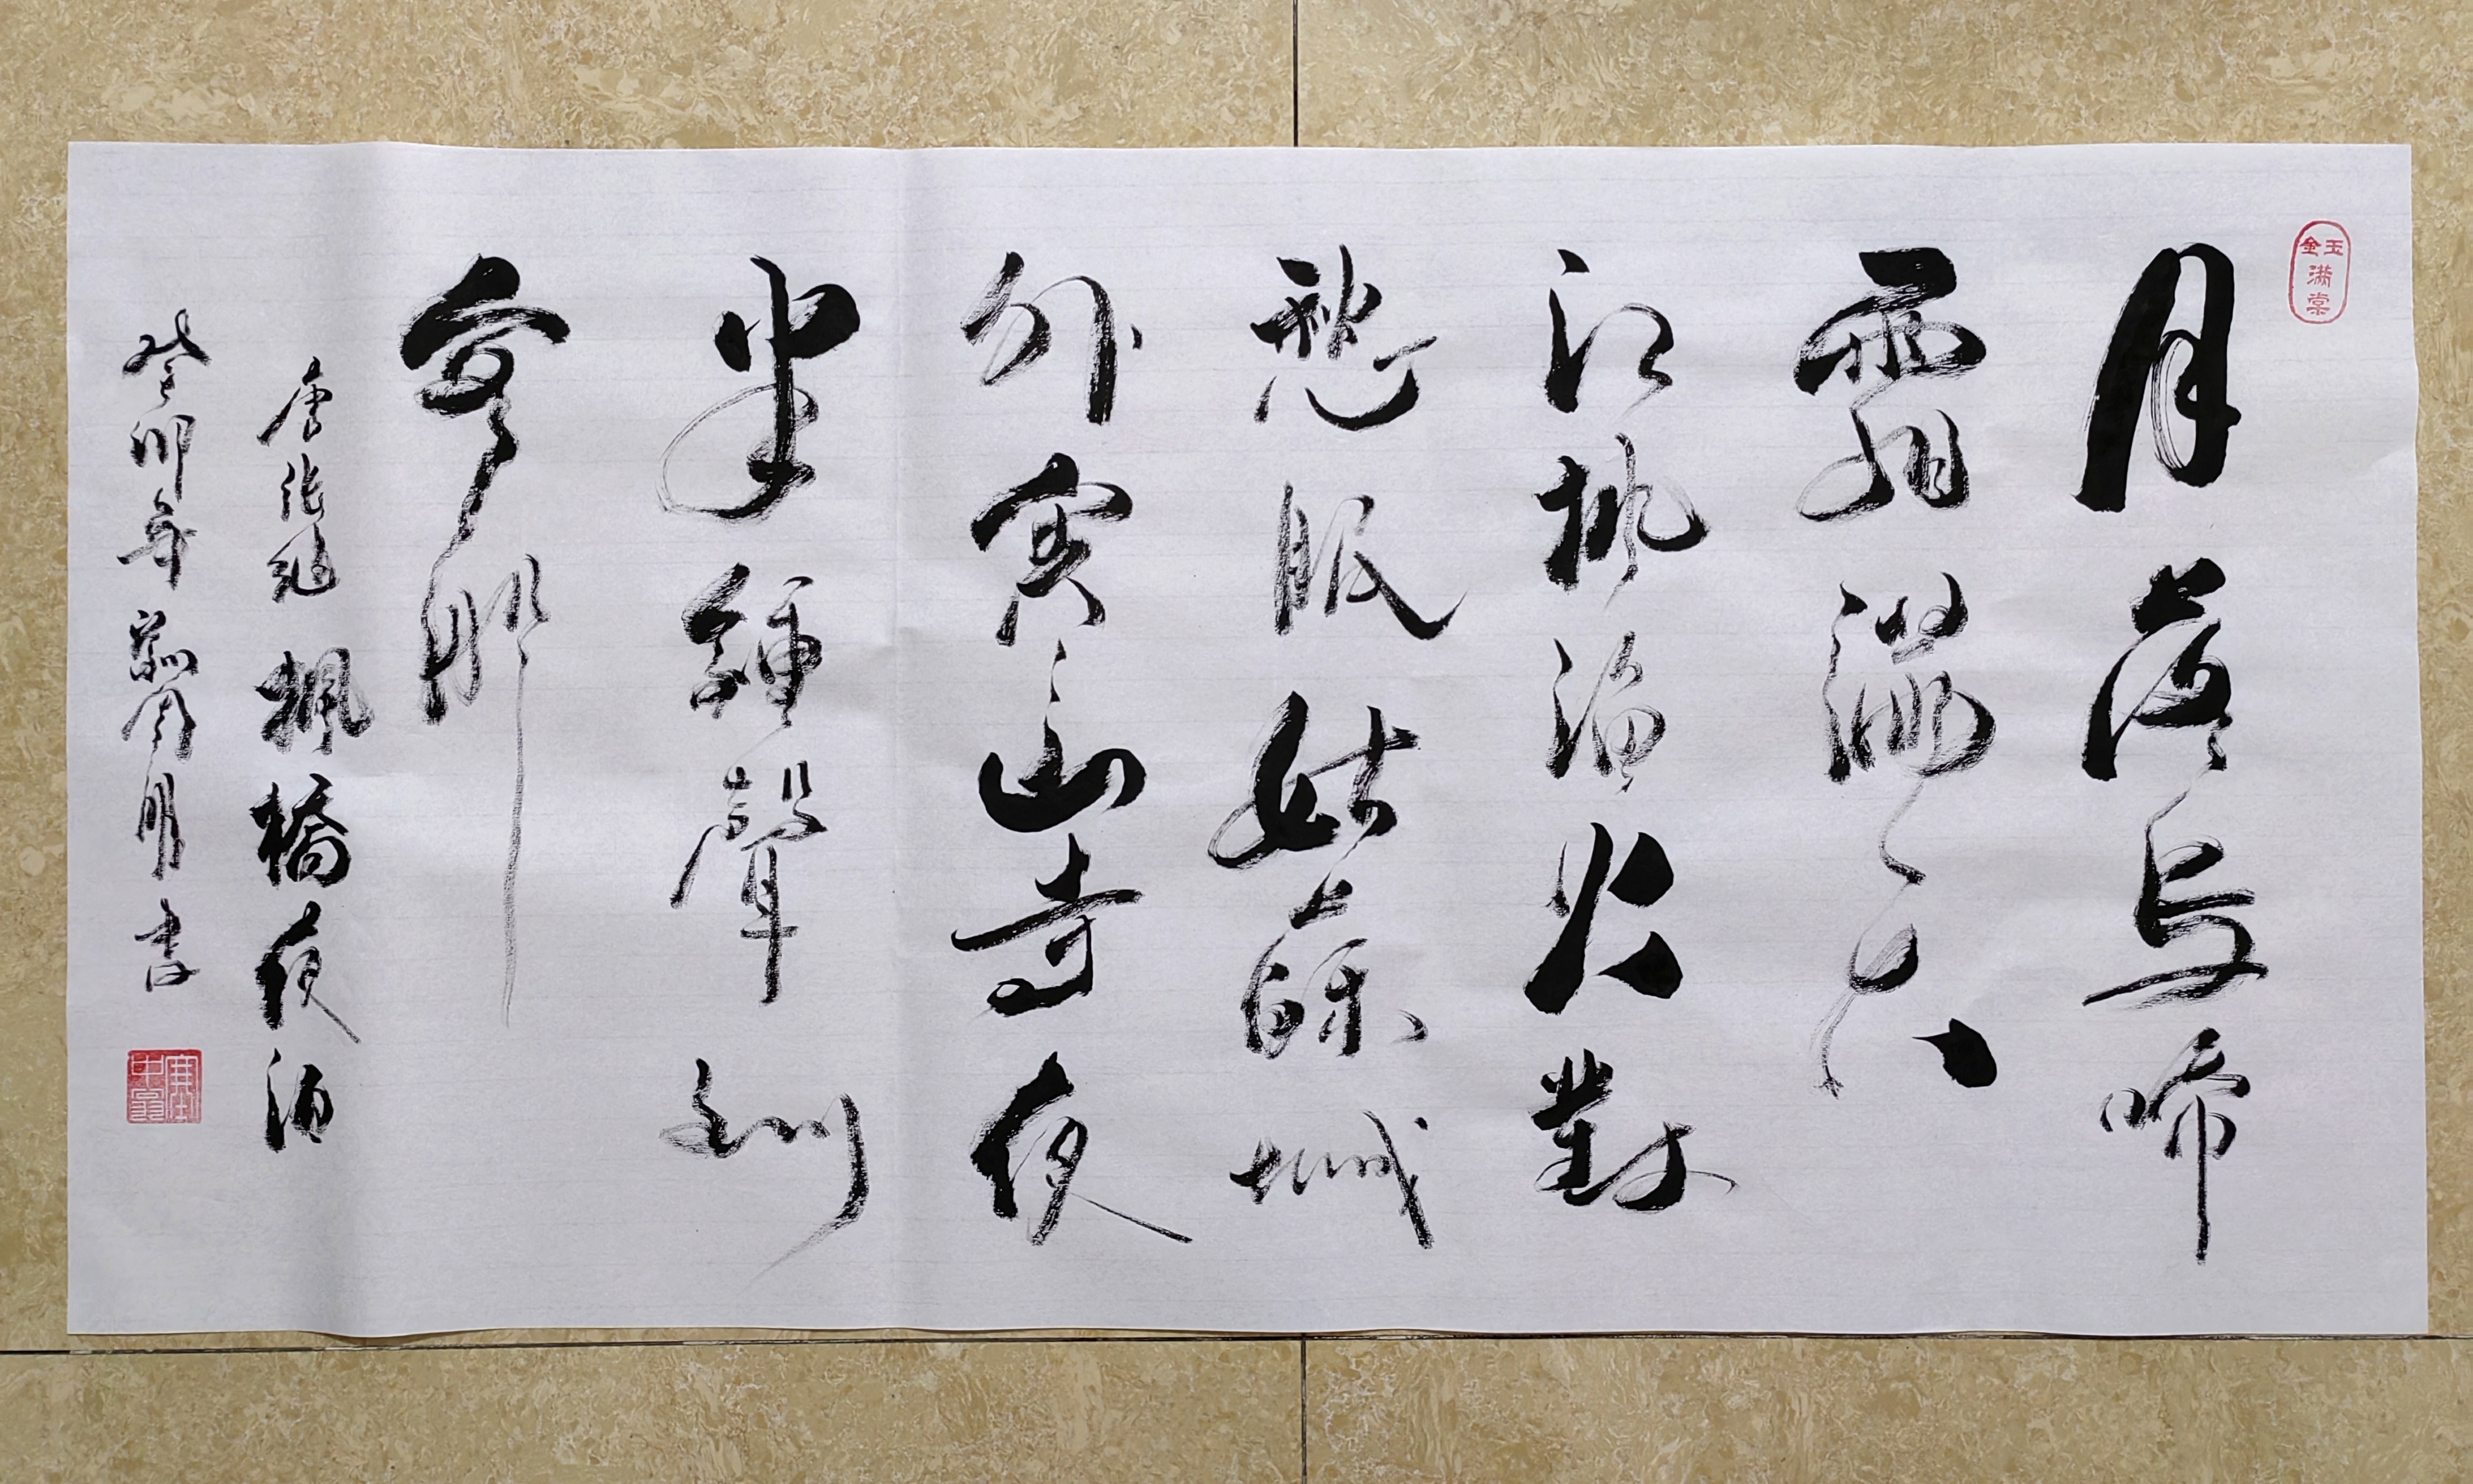 金玉滿堂
月落烏啼
霜滿天
江楓漁火對
愁眠姑蘇城
外寒山寺夜
半鐘聲到
客船
唐張繼楓橋夜泊
癸卯年 明書